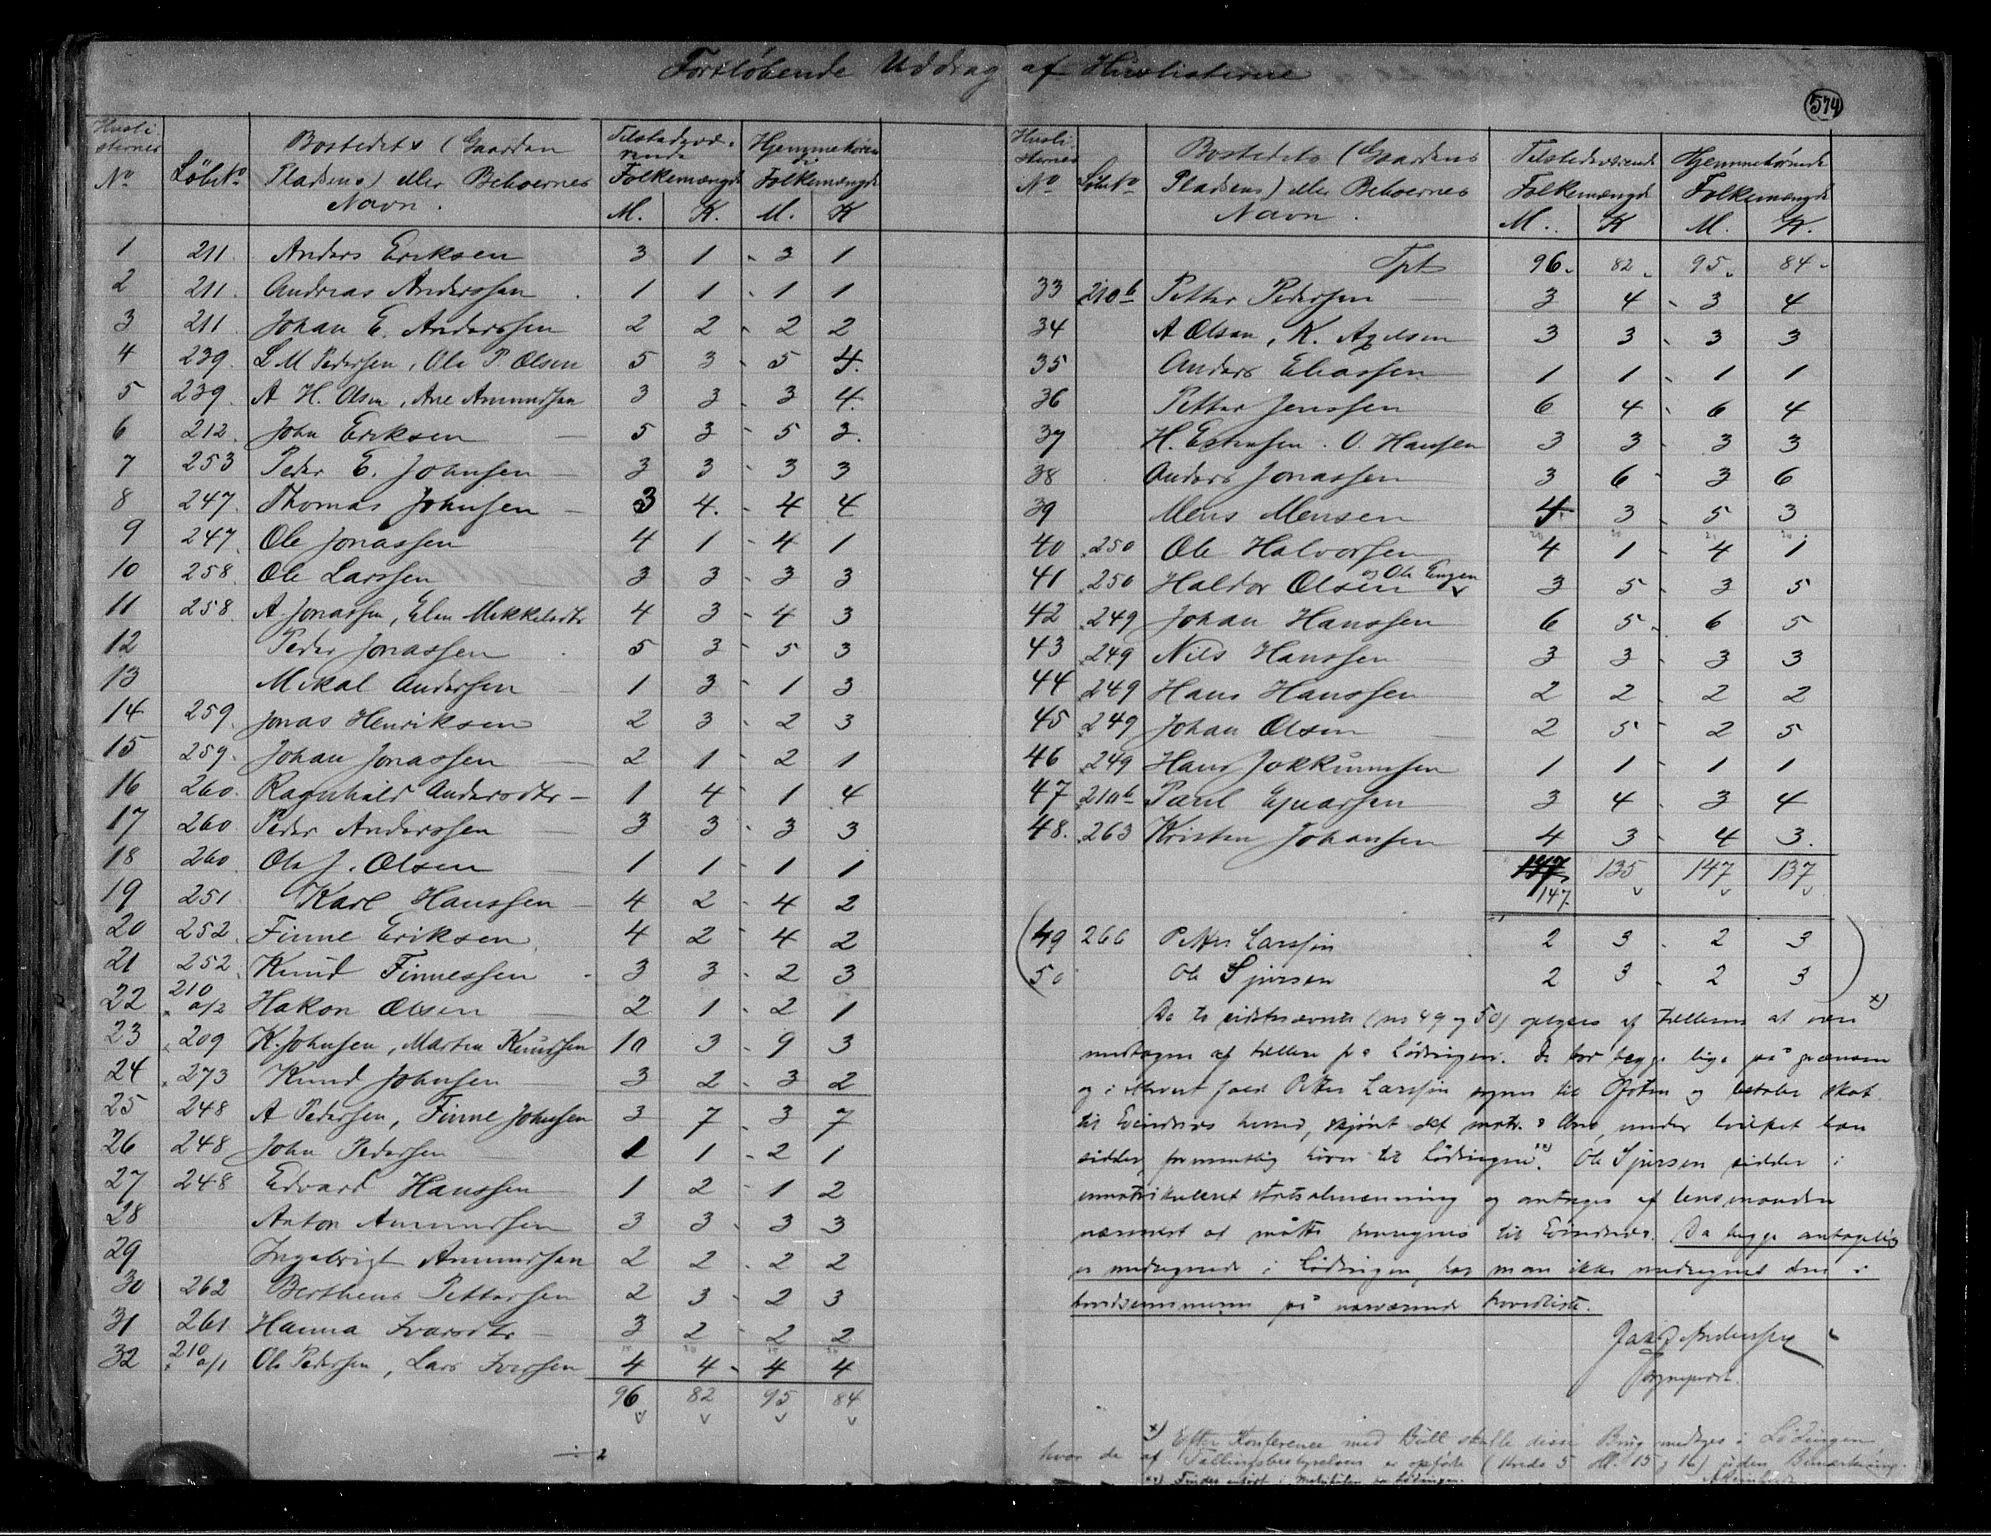 Fortløbende Uddrag af Huslisterne
574
Husli
sternes
No
Løbe No
Bostedets (Gaarden
Pladsens) eller Beboernes
Navn.
Tilstedevæ-
rende
Folkemængde
Hjemmehøren
Folkemængde
M. K. M. K
1 211. Anders Eriksen 3 1 3 1
2 211. Andreas Anderssen 1 1 1 1
3 211. Johan E. Anderssen 2 2 2 2
4 239. L M Pedersen, Ole P. Olsen 5 3 5 4.
5 239. A H. Olsen, Ane Amundsen 3 3 3 4.
6 212. John Eriksen 5 3 5 3.
7 253 Peder E. Johnsen 3 3 3 3
8 247. Thomas Johnsen 3 4. 4 4
9 247. Ole Jonassen 4 1 4 1
10 258. Ole Larssen 3 3 3 3
11 258. A. Jonassen, Elen Mikkelsdtr 4 3 4 3
12 Peder Jonassen 5 3 5 3
13 Mikal Andersen 1 3 1 3
14 259. Jonas Henriksen 2 3 2 3
15 259. Johan Jonassen 2 1 2 1
16 260. Ragnhild Andersdtr 1 4 1 4
17 260 Peder Anderssen 3 3 3 3
18 260 Ole J. Olsen 1 1 1 1
19 251. Karl Hanssen 4 2 4 2
20 252. Finne Eriksen 4 2 4 2
21 252. Knud Finnessen 3 3 2 3
22 210 a/2 Hakon Olsen 2 1 2 1
23 209 K. Johnsen, Martin Knudsen 10 3 9 3
24 273 Knud Johnsen 3 2 3 2
25 248 A Pedersen, Finne Johnsen 3 7 3 7
26 248 John Pedersen 1 1 2 1
27 248 Edvard Hanssen 1 2 1 2
28 Anton Amundsen 3 3 3 3
29 Ingebrigt Amundsen 2 2 2 2
30 262 Bertheus Pettersen 2 3 2 3
31 261 Hanna Ivarsdtr 3 2 2 2
32 210 a/1 Ole Pedersen, Lars Iversen 4 4 4 4
96 82 95 84
÷ 2
Husli
sternes
No
Løbe No
Bostedets (Gaardens
Pladsens) eller Beboernes
Navn.
Tilstedeværende
Folkemængde
Hjemmehørende
Folkemængde
M. K M. K.
Tpt 96 82 95 84
33 210 b Petter Pedersen 3 4 3 4
34 A Olsen, K. Axelsen 3 3 3 3
35 Anders Eliassen 1 1 1 1
36 Petter Jenssen 6 4 6 4
37 H. Estensen. O. Hansen 3 3 3 3
38 Anders Jonassen 3 6 3 6
39 Mens Mensen 4 3 5 3
40 250 Ole Halvorsen 4 1 4 1
41 250 Haldor Olsen og Ole Engen 3 5 3 5
42 249 Johan Hanssen 6 5 6 5
43 249 Nils Hanssen 3 3 3 3
44 249 Hans Hanssen 2 2 2 2
45 249 Johan Olsen 2 5 2 5
46 249 Hans Jokkumsen 1 1 1 1
47 210 b Paul Ejvarsen 3 4 3 4
48. 263 Kristen Johansen 4 3 4 3.
147. 135 147 137
147.
(49 266 Petter Larssen 2 3 2 3)
(50 Ole Sjursen 2 3 2 3)
De to sidstnævnte (no 49 og 50) opgives af tælleren at være x)
medtagne af tælleren fra Lødingen. De bor begge lige på grænsen
og i ethvert fald Petter Larssen sogner til Ofoten og betaler skat
til Evindnes herred, skjønt det matr. , under hvilket han
sidder, formentlig hører til Lødingen. xx) Ole Sjursen sidder i
umatrikuleret statsalmenning og antages af lensmanden
nærmest at måtte henregnes til Evindnes. Da begge antagelig
er medregnede i Lødingen, har man ikke medregnet dem i
hovedsummen på nærværende hovedliste.
Anderssen
Sogneprest.
x) Efter Konference med Büll skulle disse Brug medtages i Lödingen
hvor de af Tællingsbestyrelsen er opførte (Kreds 5 Hl. 15 og 16) uden Bemærkning.
xx) Findes anført i Matrikulen for Lödingen.